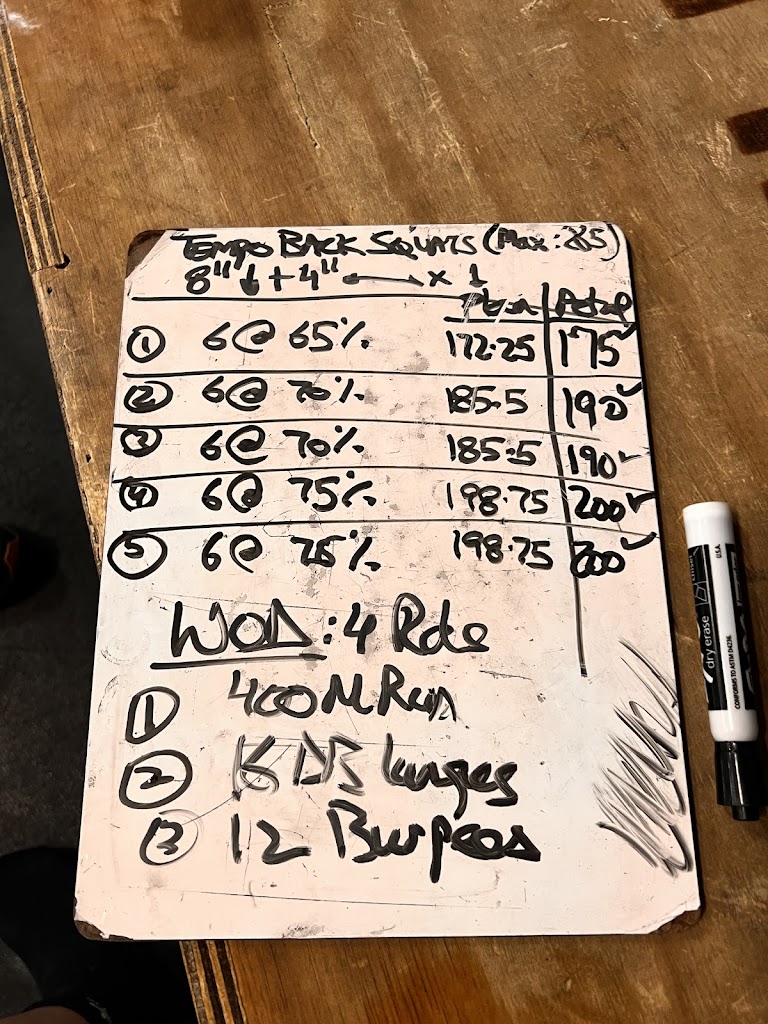 TEMPO BACK SQUATS (Max: 265)
8" ↓ + 4" ↔ × 1
Plan Actual
① 6@ 65% 172.25 175 ✓
② 6@ 70% 185.5 190 ✓
③ 6@ 70% 185.5 190 ✓
④ 6@ 75% 198.75 200 ✓
⑤ 6@ 75% 198.75 200 ✓
WOD: 4 Rds
① 400M Run
② DB lunges
③ 12 Burpees
dry erase
CONFORMS TO ASTM D4236
U.S.A.